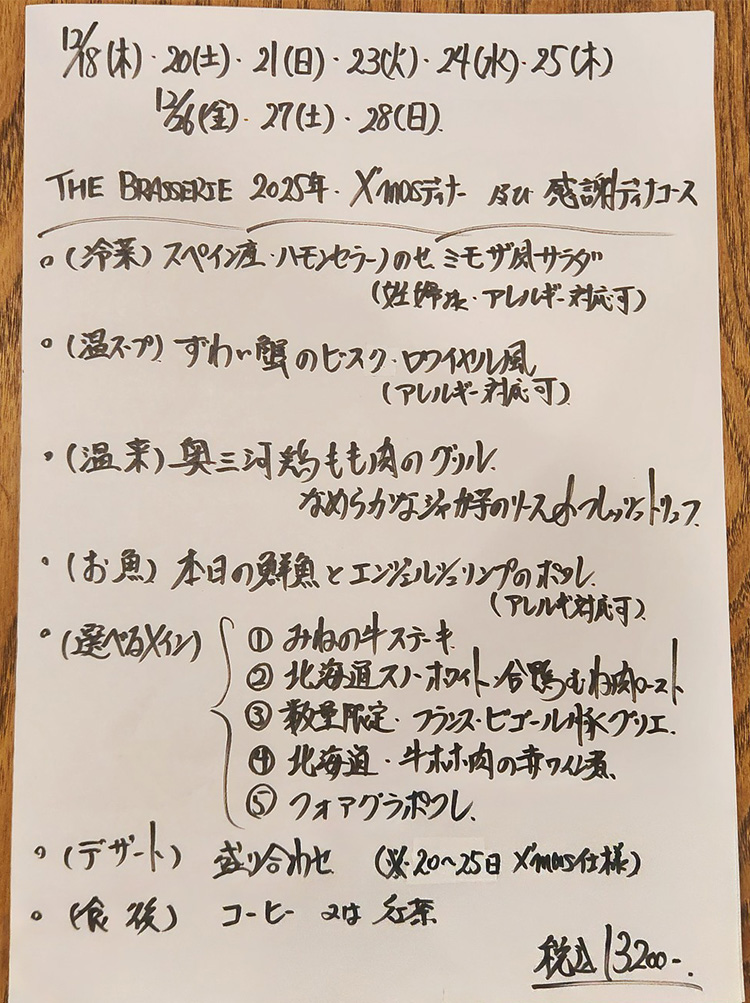 12/18(木)・20(土)・21(日)・23(火)・24(水)・25(木)
12/26(金)・27(土)・28(日)
THE BRASSERIE 2025年・X'mosディナー 及び 感謝ディナーコース
・(冷菜) スペイン産・ハモンセラーノのせ ミモザ風サラダ
(妊婦法・アレルギー対応可)
・(温スープ) ずわい蟹のビスク・ロワイヤル風
(アレルギー対応可)
・(温菜) 奥三河鶏もも肉のグリル
なめらかなジャガ芋のソース フレッシュトリュフ
・(お魚) 本日の鮮魚とエンジェルシュリンプのポワレ
(アレルギー対応可)
・(選べるメイン) ① みねの牛ステーキ
② 北海道スノーホワイト・合鴨むね肉ロースト
③ 数量限定・フランス・ビゴール豚グリエ
④ 北海道・牛ホホ肉の赤ワイン煮
⑤ フォアグラポワレ
・(デザート) 盛り合わせ (※20〜25日 X'mos仕様)
・(食後) コーヒー 又は 紅茶
税込 13,200-